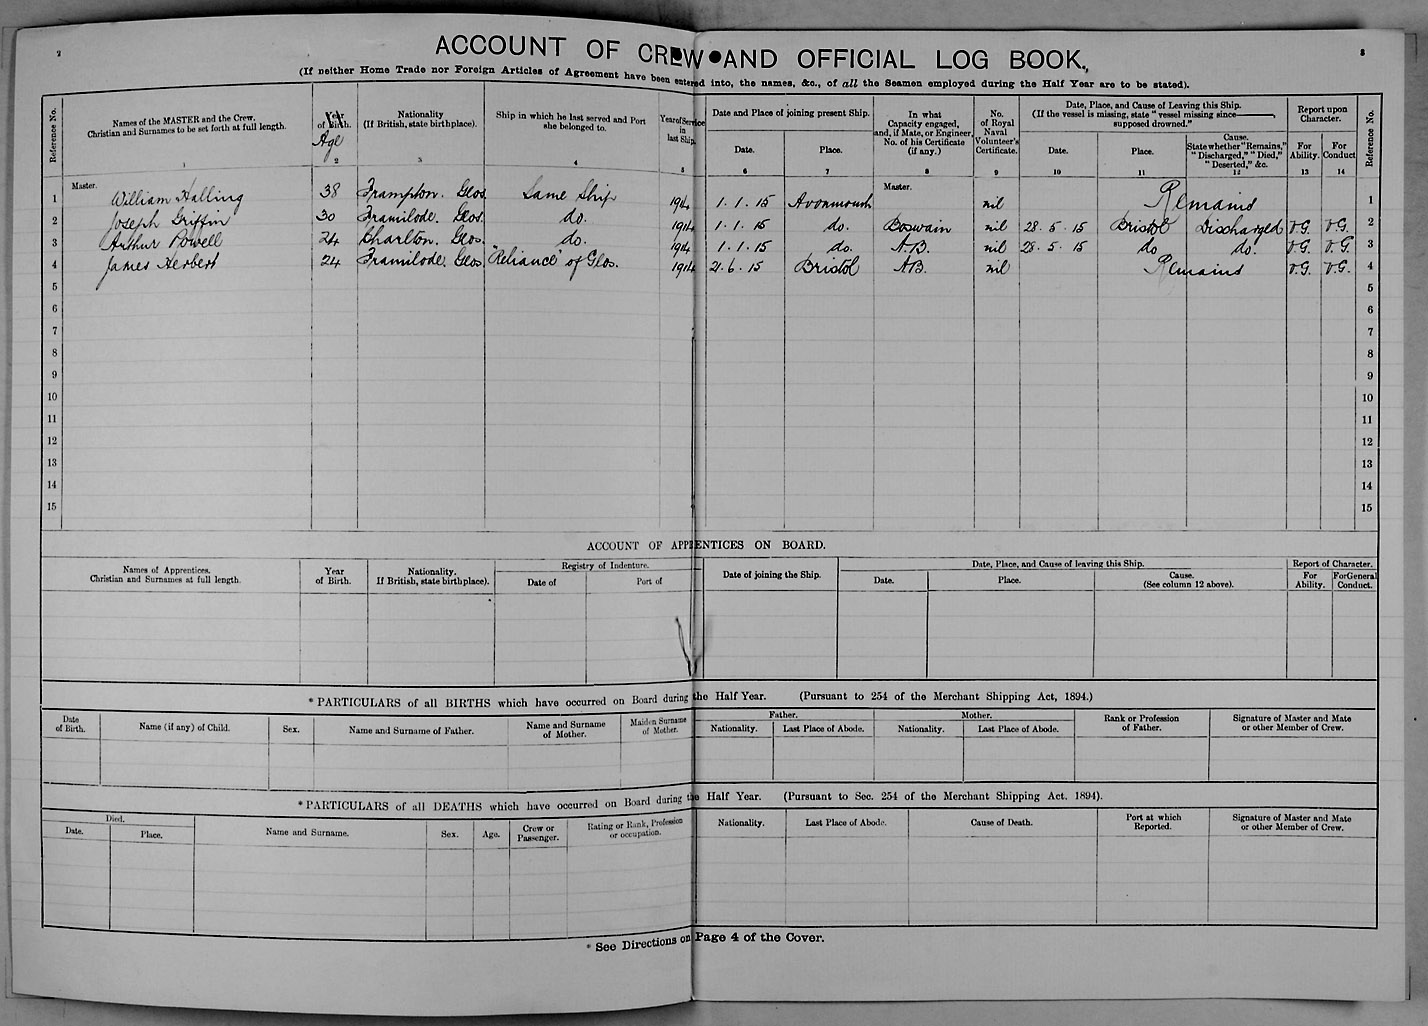 2
3
ACCOUNT OF CREW AND OFFICIAL LOG BOOK.,
(If neither Home Trade nor Foreign Articles of Agreement have been entered into, the names, &c., of all the Seamen employed during the Half Year are to be stated).
Reference No.
Names of the MASTER and the Crew.
Christian and Surnames to be set forth at full length.
1
Year
of Birth.
Age
2
Nationality
(If British, state birthplace).
3
Ship in which he last served and Port
she belonged to.
4
Year of Service
in
last Ship.
5
Date and Place of joining present Ship.
Date.
6
Place.
7
In what
Capacity engaged,
and, if Mate, or Engineer,
No. of his Certificate
(if any.)
8
No.
of Royal
Naval
Volunteer's
Certificate.
9
Date, Place, and Cause of Leaving this Ship.
(If the vessel is missing, state "vessel missing since———,
supposed drowned."
Date.
10
Place.
11
Cause.
State whether "Remains,"
"Discharged," "Died,"
"Deserted," &c.
12
Report upon
Character.
For
Ability.
13
For
Conduct
14
Reference No.
Master.
Master.
1 William Halling 38 Frampton. Glos. Same Ship 1914 1.1.15 Avonmouth nil Remains 1
2 Joseph Griffin 30 Framilode. Glos. do. 1914 1.1.15 do. Boswain nil 28.5.15 Bristol Discharged V.G. V.G. 2
3 Arthur Powell 24 Charlton. Glos. do. 1914 1.1.15 do. A.B. nil 28.5.15 do do. V.G. V.G. 3
4 James Herbert 24 Framilode. Glos. "Reliance" of Glos. 1914 21.6.15 Bristol A.B. nil Remains V.G. V.G. 4
5 5
6 6
7 7
8 8
9 9
10 10
11 11
12 12
13 13
14 14
15 15
ACCOUNT OF APPRENTICES ON BOARD.
Names of Apprentices.
Christian and Surnames at full length.
Year
of Birth.
Nationality.
If British, state birthplace).
Registry of Indenture.
Date of
Port of
Date of joining the Ship.
Date, Place, and Cause of leaving this Ship.
Date.
Place.
Cause.
(See column 12 above).
Report of Character.
For
Ability.
For General
Conduct.
* PARTICULARS of all BIRTHS which have occurred on Board during the Half Year. (Pursuant to 254 of the Merchant Shipping Act, 1894.)
Date
of Birth.
Name (if any) of Child.
Sex.
Name and Surname of Father.
Name and Surname
of Mother.
Maiden Surname
of Mother.
Father.
Nationality.
Last Place of Abode.
Mother.
Nationality.
Last Place of Abode.
Rank or Profession
of Father.
Signature of Master and Mate
or other Member of Crew.
* PARTICULARS of all DEATHS which have occurred on Board during the Half Year. (Pursuant to Sec. 254 of the Merchant Shipping Act. 1894).
Died.
Date.
Place.
Name and Surname.
Sex.
Age.
Crew or
Passenger.
Rating or Rank, Profession
or occupation.
Nationality.
Last Place of Abode.
Cause of Death.
Port at which
Reported.
Signature of Master and Mate
or other Member of Crew.
* See Directions on Page 4 of the Cover.